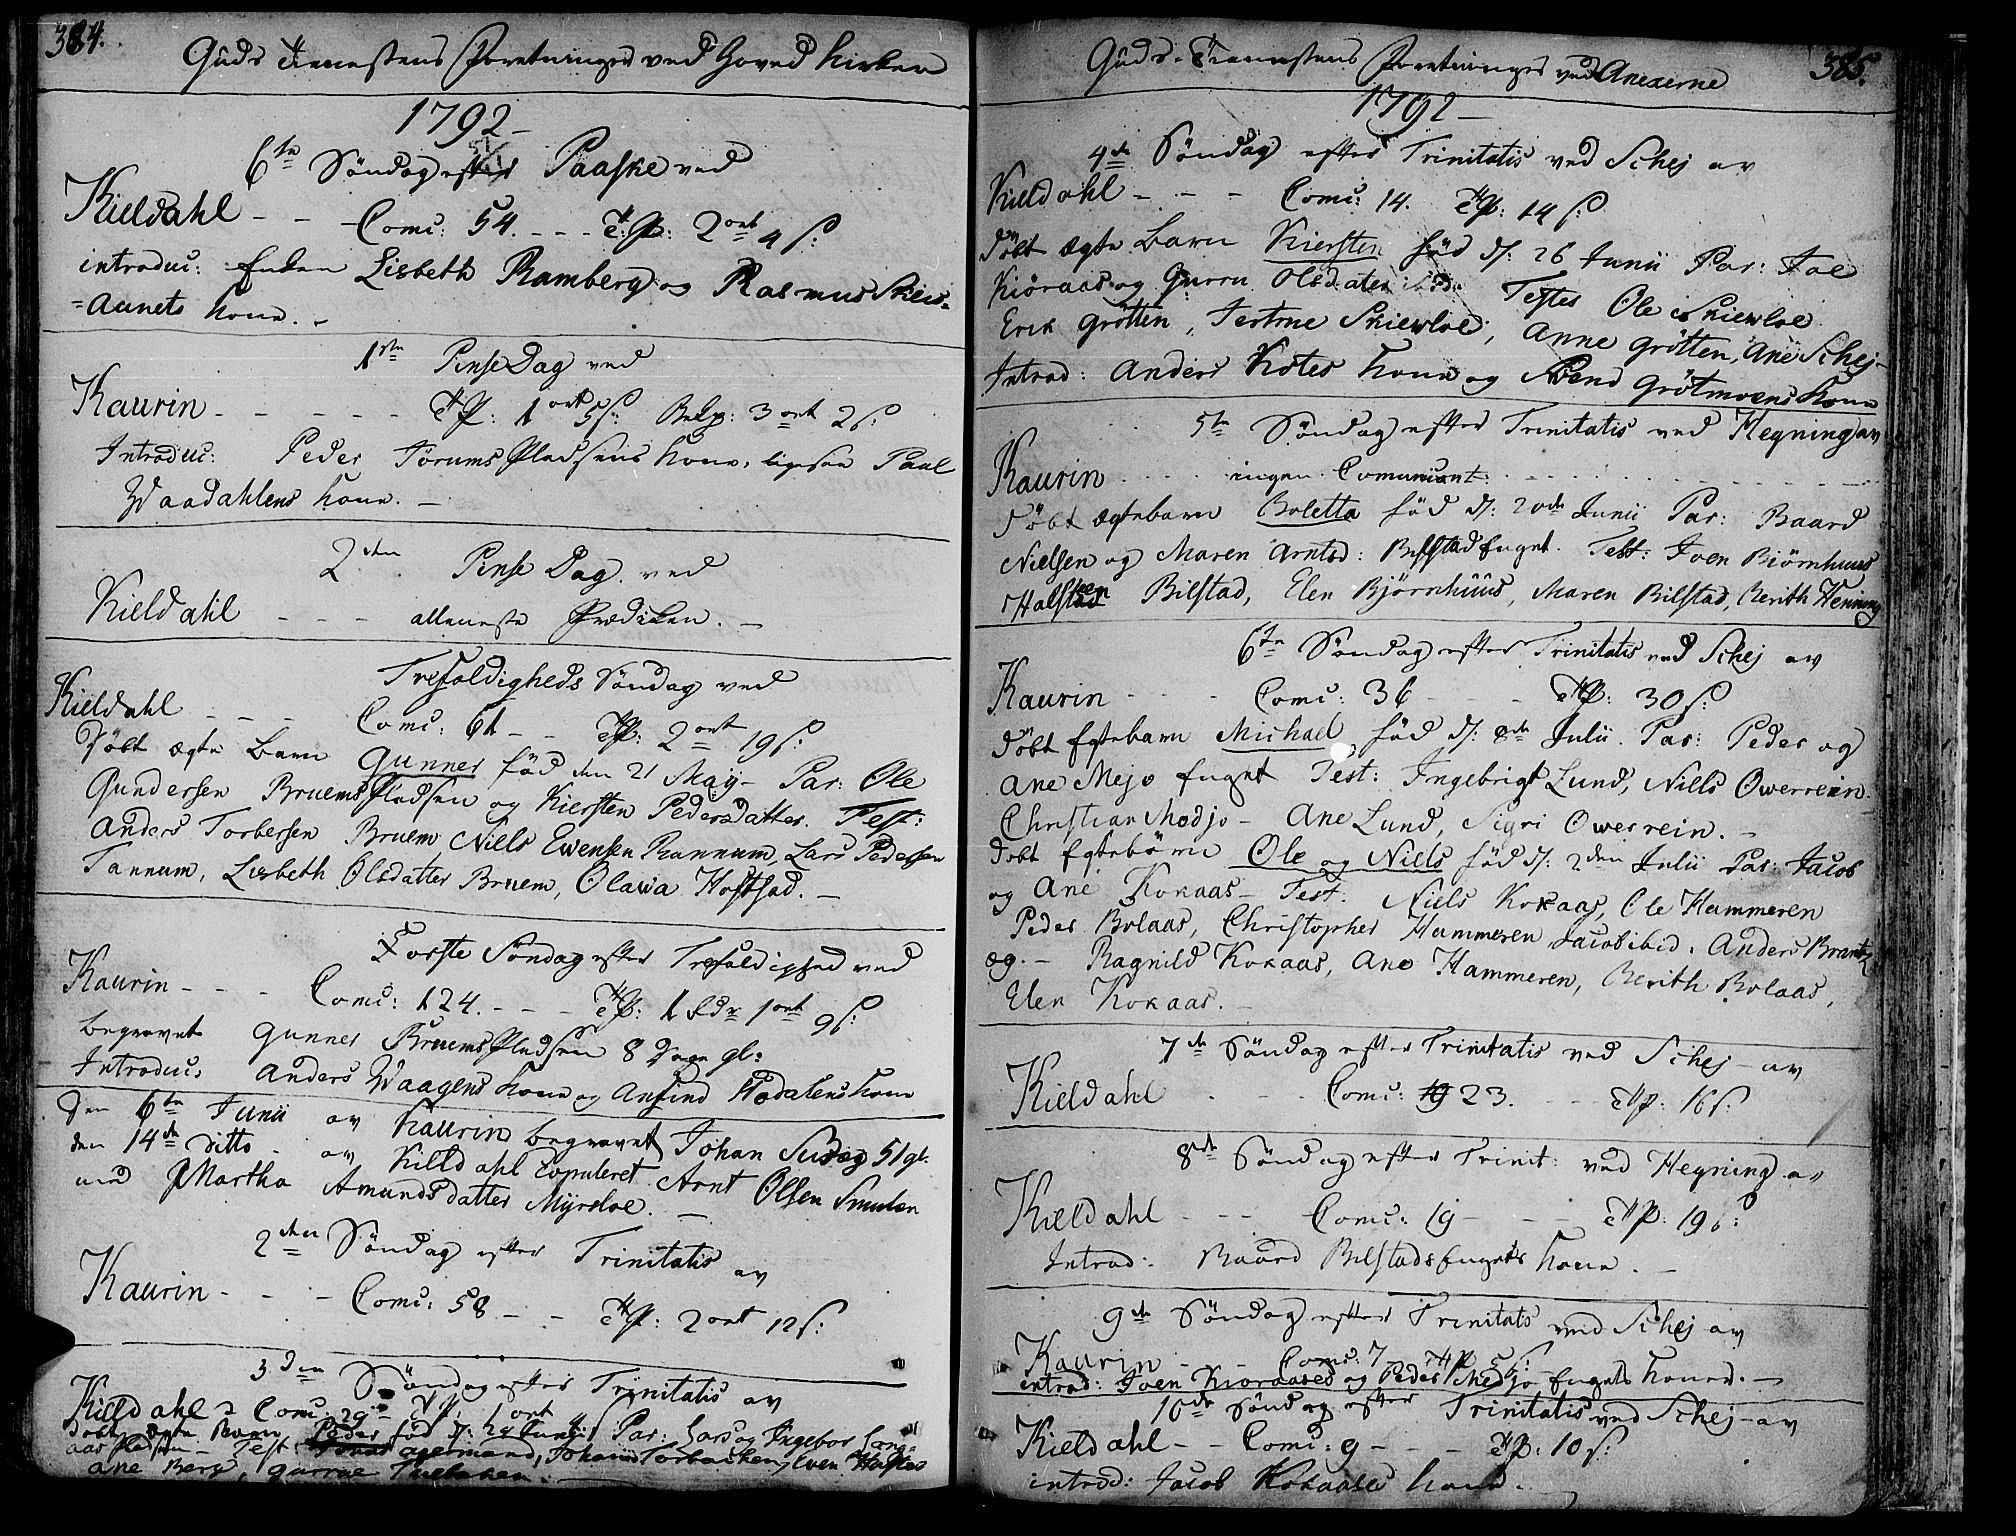 384.
Guds Tienestens Foretninger ved Hoved Kirken
1792
6te Søndag efter Paaske ved
Kieldahl - - Comu: 54. - - - T.P: 2 ort 4 s:
introduc: Enken Lisbeth Ramberg og Rasmus Skies-
=aunets Kone. -
1ste PinseDag ved
Kaurin - - - - - TP: 1 ort 5 s: 3 ort 2 s:
Introduc: Peder Jørums Pladsens Kone, ligesaa Paal
Waadahlens Kone. -
2den Pinse Dag ved
Kieldahl - - - alleneste Prædiken. -
Trefoldigheds Søndag ved
Kieldahl - - - Comu: 61 - - TP: 2 ort 19 s:
Døbt ægte Barn Gunner fød den 21 May - Par: Ole
Gundersen Bruems Pladsen og Kiersten Pedersdatter. Test:
Anders Torbersen Bruem Niels Ewensen Rannum, Lars Pedersen
Tannum, Lisbeth Olsdatter Bruem, Olawa Hofstad. -
Første Søndag efter Trefoldighed ved
Kaurin - - - Comu: 124. - - - TP: 1 Rdr 1 ort 9 s:
begravet Gunner Bruems Pladsen 8 Dage gl:
Introduc: Anders Waagens Kone og Anfind Hodalens Kone
Den 6te Junii av Kaurin begravet Johan Susæg 51 gl.
den 14de ditto av Kieldahl Copuleret Arnt Olsen Smulan
med Martha Amunds datter Myrsloe. -
2den Søndag efter Trinitatis av
Kaurin - - - Comu: 58 - - - TP: 2 ort 12 s:
3den Søndag efter Trinitatis av
Kieldahl - Comu: 29 TP: 1 ort
Døbt ægte Barn Peder fød d: Junii Par: Lars og Ingebor
aas Pladsen - Test: agermand, Johan Torbacken, Ewen
Ane Berg, gurrue
385.
Guds Tienestens Foretninger ved Anexerne
1792
4de Søndag efter Trinitatis ved Schej av
Kieldahl - - - Comu: 14. TP: 14 s:
Døbt ægte Barn Kiersten fød d: 26 Junii Par: Joe
Kiöraas og Gurru Olsdater Testes Ole Skiewloe
Erik Grötten, Skiewloe, Anne Grötten, Ane Schej-
Introd: Anders Kone og Svend Grötmoens Kone
5te Søndag efter Trinitatis ved Hegning av
Kaurin . . . . ingen Comunicant
Døbt ægtebarn Boletta fød d: 20de Junii Par: Baard
Nielsen og Maren Arntsd: Bilstad Enget. Test: Joen Biörnhuus
Halsteen Bilstad, Elen Bjørnhuus, Maren Bilstad, Berith Hening
6te Søndag efter Trinitatis ved Schej av
Kaurin - - - Comu: 36 - - - TP: 30 s:
Døbt Egtebarn Michael fød d: 2de Julii. Par: Peder og
Ane Mejo Enget Test: Ingebrigt Lund, Niels Owerrein
Christian Medjo - Ane Lund, Sigri Owerrein. -
Døbt Egtebörn Ole og Niels fød d: 2den Julii Par: Jacob
og Ane Kokaas - Test: Niels Kokaas, Ole Hammeren
Peder Bolaas, Christopher Hammeren Jacob ibid: Anders
og. - Ragnild Kokaas, Ane Hammeren, Berith Bolaas,
Elen Kokaas. -
7de Søndag efter Trinitatis ved Schej - av
Kieldahl - - Comu: 19 23. - - TP: 16 s:
8de Søndag efter Trinit: ved Hegning av
Kieldahl - - - Comu: 19 - - - TP: 19 s:
Introd: Baard Bilstads Engets Kone. -
9de Søndag efter Trinitatis ved Schej av
Kaurin - - Comu: 7 TP 5 s:
introd: Joen Kioraases og Peder Medjo Engets Koner. -
10de Søndag efter Trinitatis ved Schej - av
Kieldahl - - Comu: 9 - - - TP: 10 s:
introd: Jacob Kokaases Kone. -